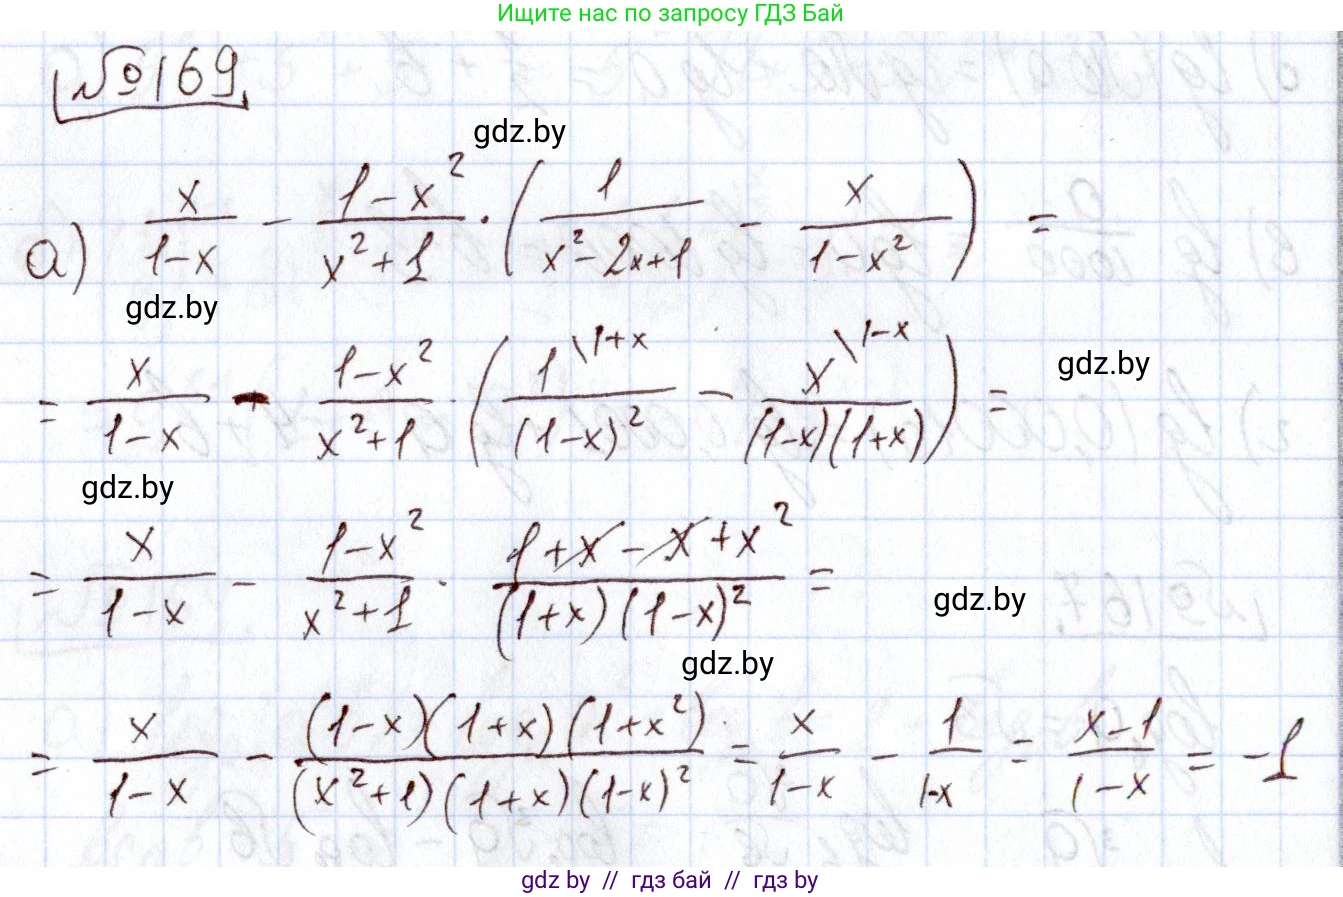 Ищите нас по запросу ГДЗ Бай
№169
gdz.by
а) x/(1-x) - (1-x²)/(x²+1) · (1/(x²-2x+1) - x/(1-x²)) =
gdz.by
= x/(1-x) - (1-x²)/(x²+1) · (1\1+x/(1-x)² - x\1-x/((1-x)(1+x))) =
gdz.by
gdz.by
= x/(1-x) - (1-x²)/(x²+1) · (1+x-x+x²)/((1+x)(1-x)²) =
gdz.by
gdz.by
= x/(1-x) - ((1-x)(1+x)(1+x²))/((x²+1)(1+x)(1-x)²) = x/(1-x) - 1/(1-x) = (x-1)/(1-x) = -1
gdz by // гдз бай // гдз by